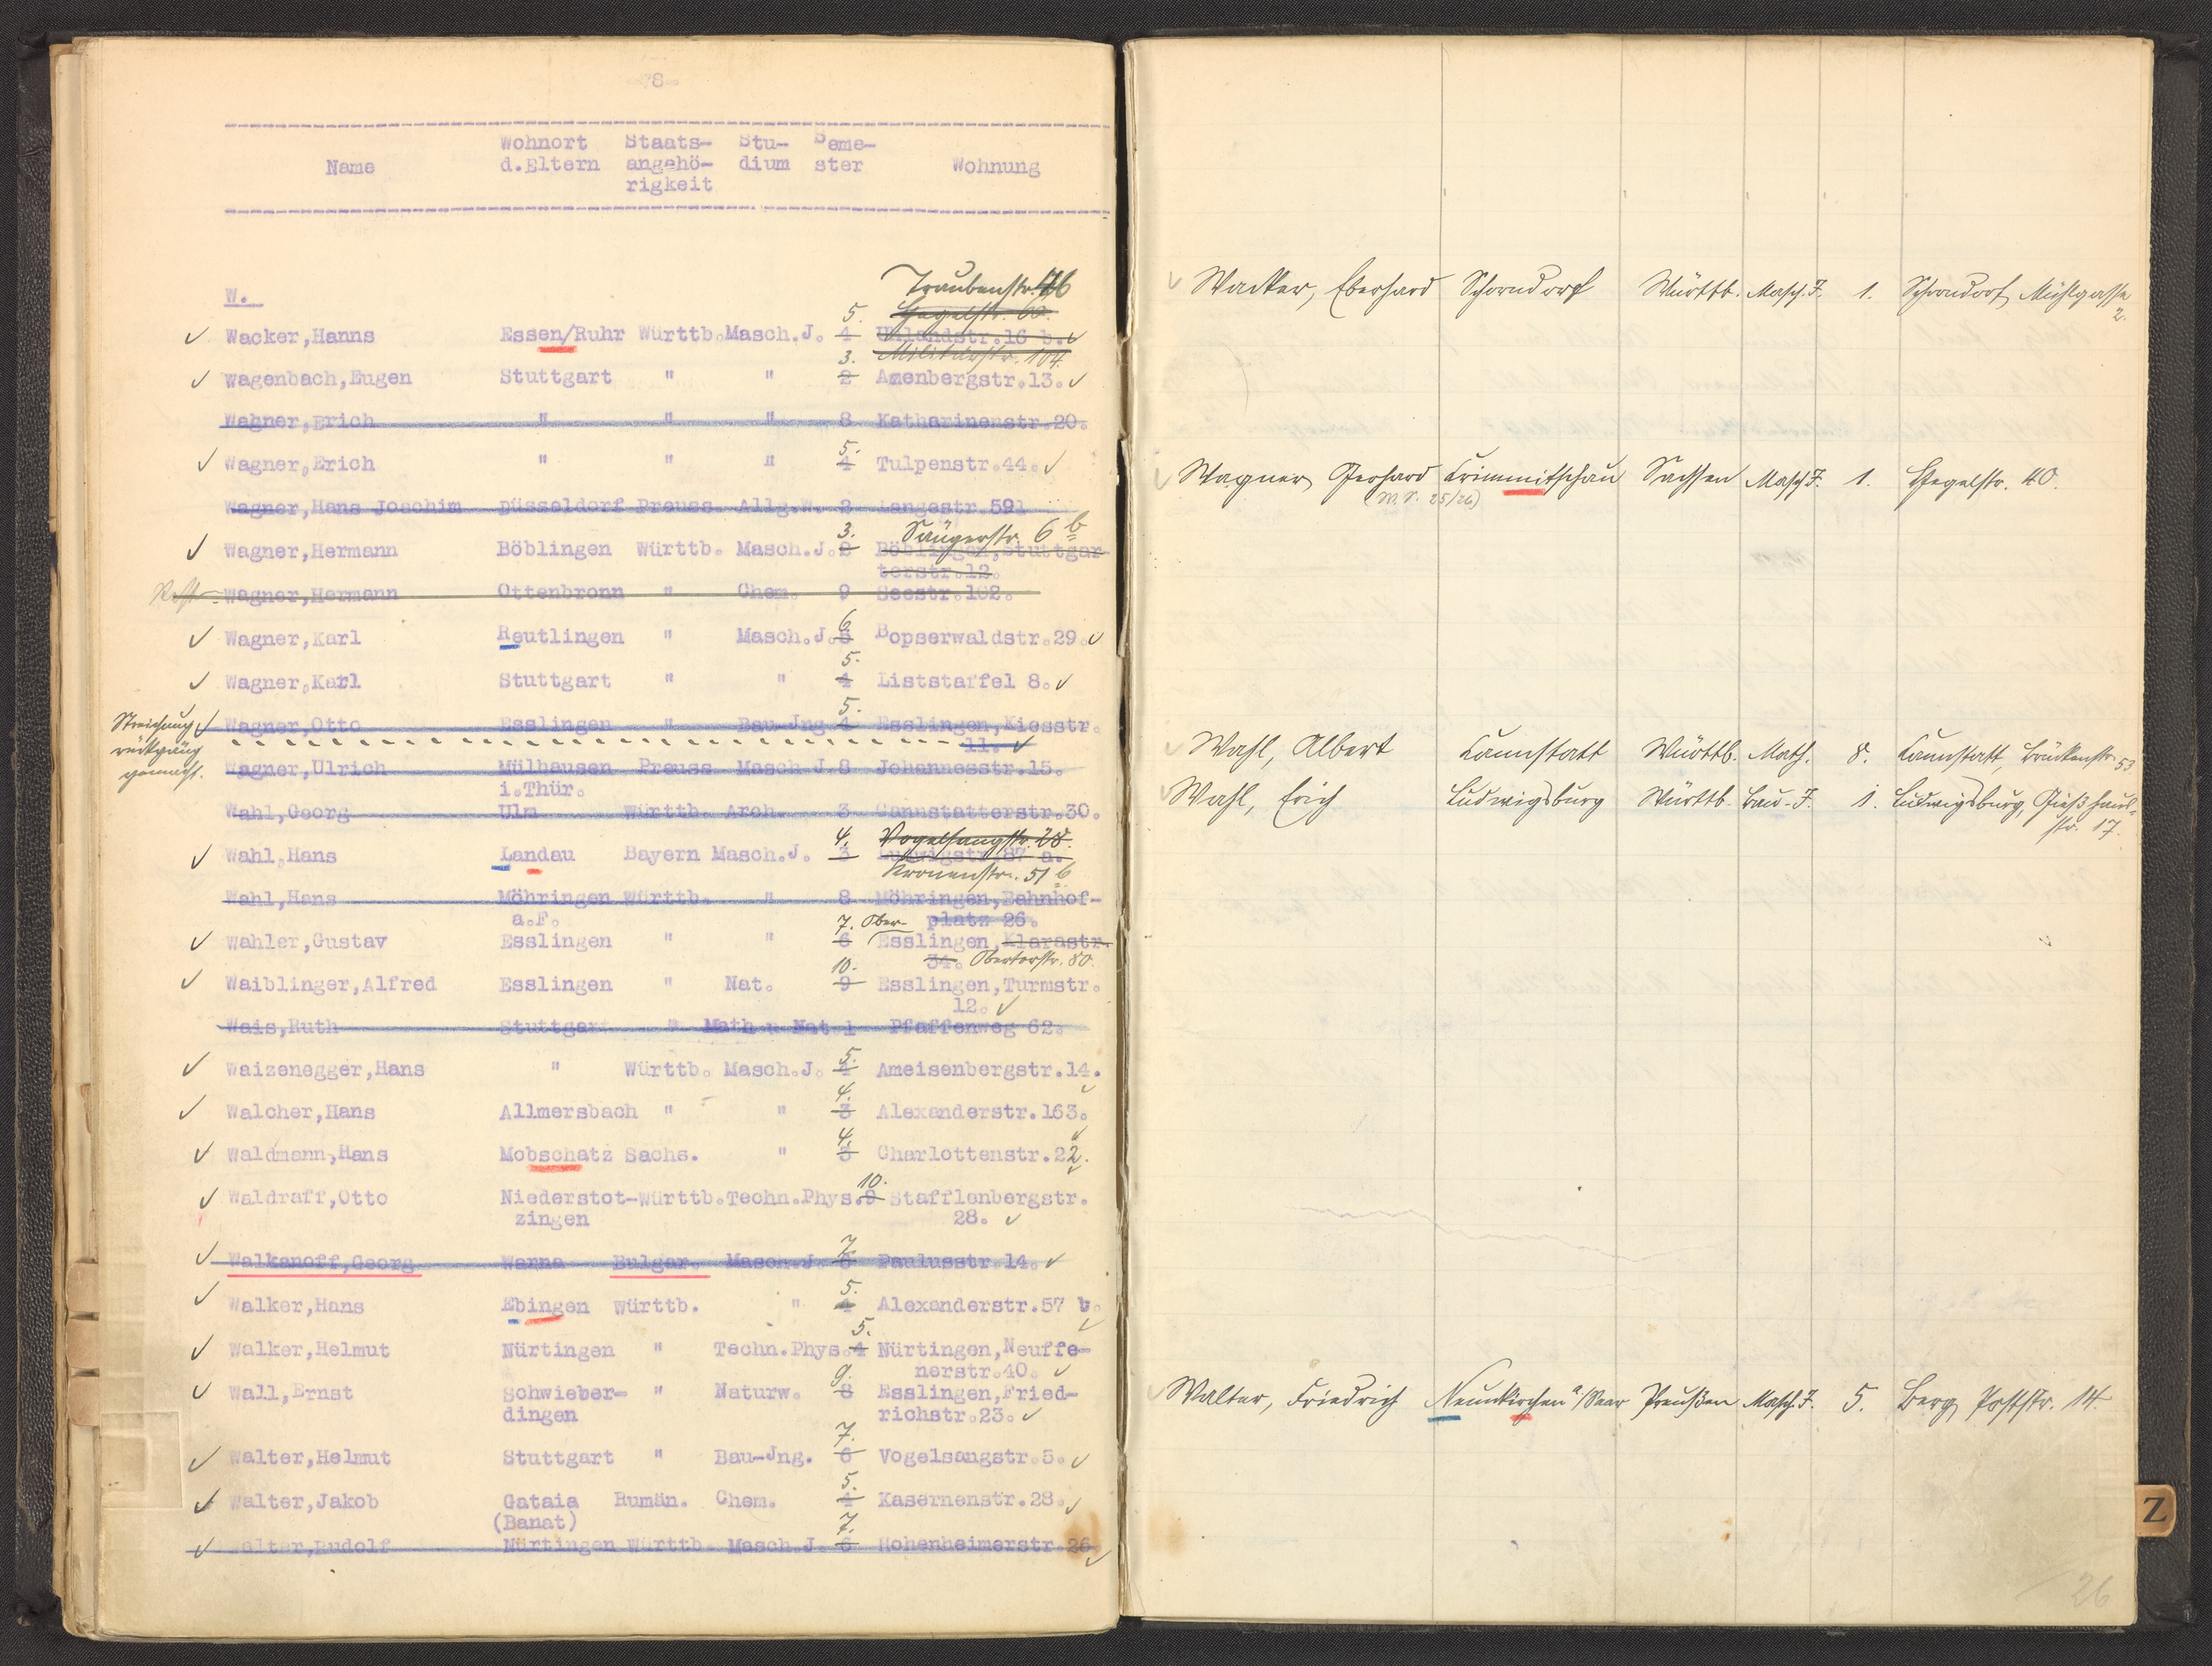 8
Name Wohnort d.Eltern Staats-angehö-rigkeit Stu-dium Seme-ster Wohnung
W.
Traubenstr. 46
5. Hegelstr. 60.
Wacker,Hanns Essen/Ruhr Württb. Masch.J. 4 Uhlandstr.16 b.
3. Militärstr. 104.
Wagenbach,Eugen Stuttgart " " 2 Azenbergstr.13.
Wagner,Erich " " " 8 Katharinenstr.20.
5.
Wagner,Erich " " " 4 Tulpenstr.44.
Wagner,Hans Joachim Düsseldorf Preuss. Allg.W. 2 Langestr.59
3. Sängerstr. 6 b
Wagner,Hermann Böblingen Württb. Masch.J. 2 Böblingen,Stuttgar-
terstr.12.
Wagner,Hermann Ottenbronn " Chem. 9 Seestr.102.
6
Wagner,Karl Reutlingen " Masch.J. 5 Bopserwaldstr.29.
5.
Wagner,Karl Stuttgart " " 4 Liststaffel 8.
5.
Streichung Wagner,Otto Esslingen " Bau-Jng 4 Esslingen,Kiesstr.
rückgäng 11.
gemacht. Wagner,Ulrich Mülhausen Preuss Masch J.8 Johannesstr.15.
i.Thür.
Wahl,Georg Ulm Württb. Arch. 3 Cannstatterstr.30.
4. Vogelsangstr. 28.
Wahl,Hans Landau Bayern Masch.J. 3 Ludwigstr.87 a.
Kronenstr. 51 b
Wahl,Hans Möhringen Württb. " 8 Möhringen,Bahnhof-
a.F. platz 26.
7. Ober-
Wahler,Gustav Esslingen " " 6 Esslingen,Klarastr.
34. Obertorstr. 80.
10.
Waiblinger,Alfred Esslingen " Nat. 9 Esslingen,Turmstr.
12.
Wais,Ruth Stuttgart " Math u Nat 1 Pfaffenweg 62.
5.
Waizenegger,Hans " Württb. Masch.J. 4 Ameisenbergstr.14.
4.
Walcher,Hans Allmersbach " " 3 Alexanderstr.163.
4.
Waldmann,Hans Mobschatz Sachs. " 3 Charlottenstr.22.
10.
Waldraff,Otto Niederstot- Württb. Techn.Phys. 9 Stafflenbergstr.
zingen 28.
7.
Walkanoff,Georg Warna Bulgar. Masch.J. 6 Paulusstr.14.
5.
Walker,Hans Ebingen Württb. " 4 Alexanderstr.57 b.
5.
Walker,Helmut Nürtingen " Techn.Phys. 4 Nürtingen,Neuffe-
nerstr.40.
9.
Wall,Ernst Schwieber- " Naturw. 8 Esslingen,Fried-
dingen richstr.23.
7.
Walter,Helmut Stuttgart " Bau-Jng. 6 Vogelsangstr.5.
5.
Walter,Jakob Gataia Rumän. Chem. 4 Kasernenstr.28.
(Banat)
7.
Walter,Rudolf Nürtingen Württb. Masch.J. 6 Hohenheimerstr.26
Wacker, Eberhard Schorndorf Württb. Masch.J. 1. Schorndorf, Mühlgasse
2.
Wagner, Gerhard Crimmitschau Sachsen Masch J. 1. Hegelstr. 40.
(W.S. 25/26)
Wahl, Albert Cannstatt Württb. Math. 8. Cannstatt, Brückenstr. 53
Wahl, Erich Ludwigsburg Württb. Bau-J. 1. Ludwigsburg, Gießhaus-
str. 17.
Walter, Friedrich Neunkirchen a/Saar Preußen Masch.J. 5. Berg, Poststr. 14
Z
26